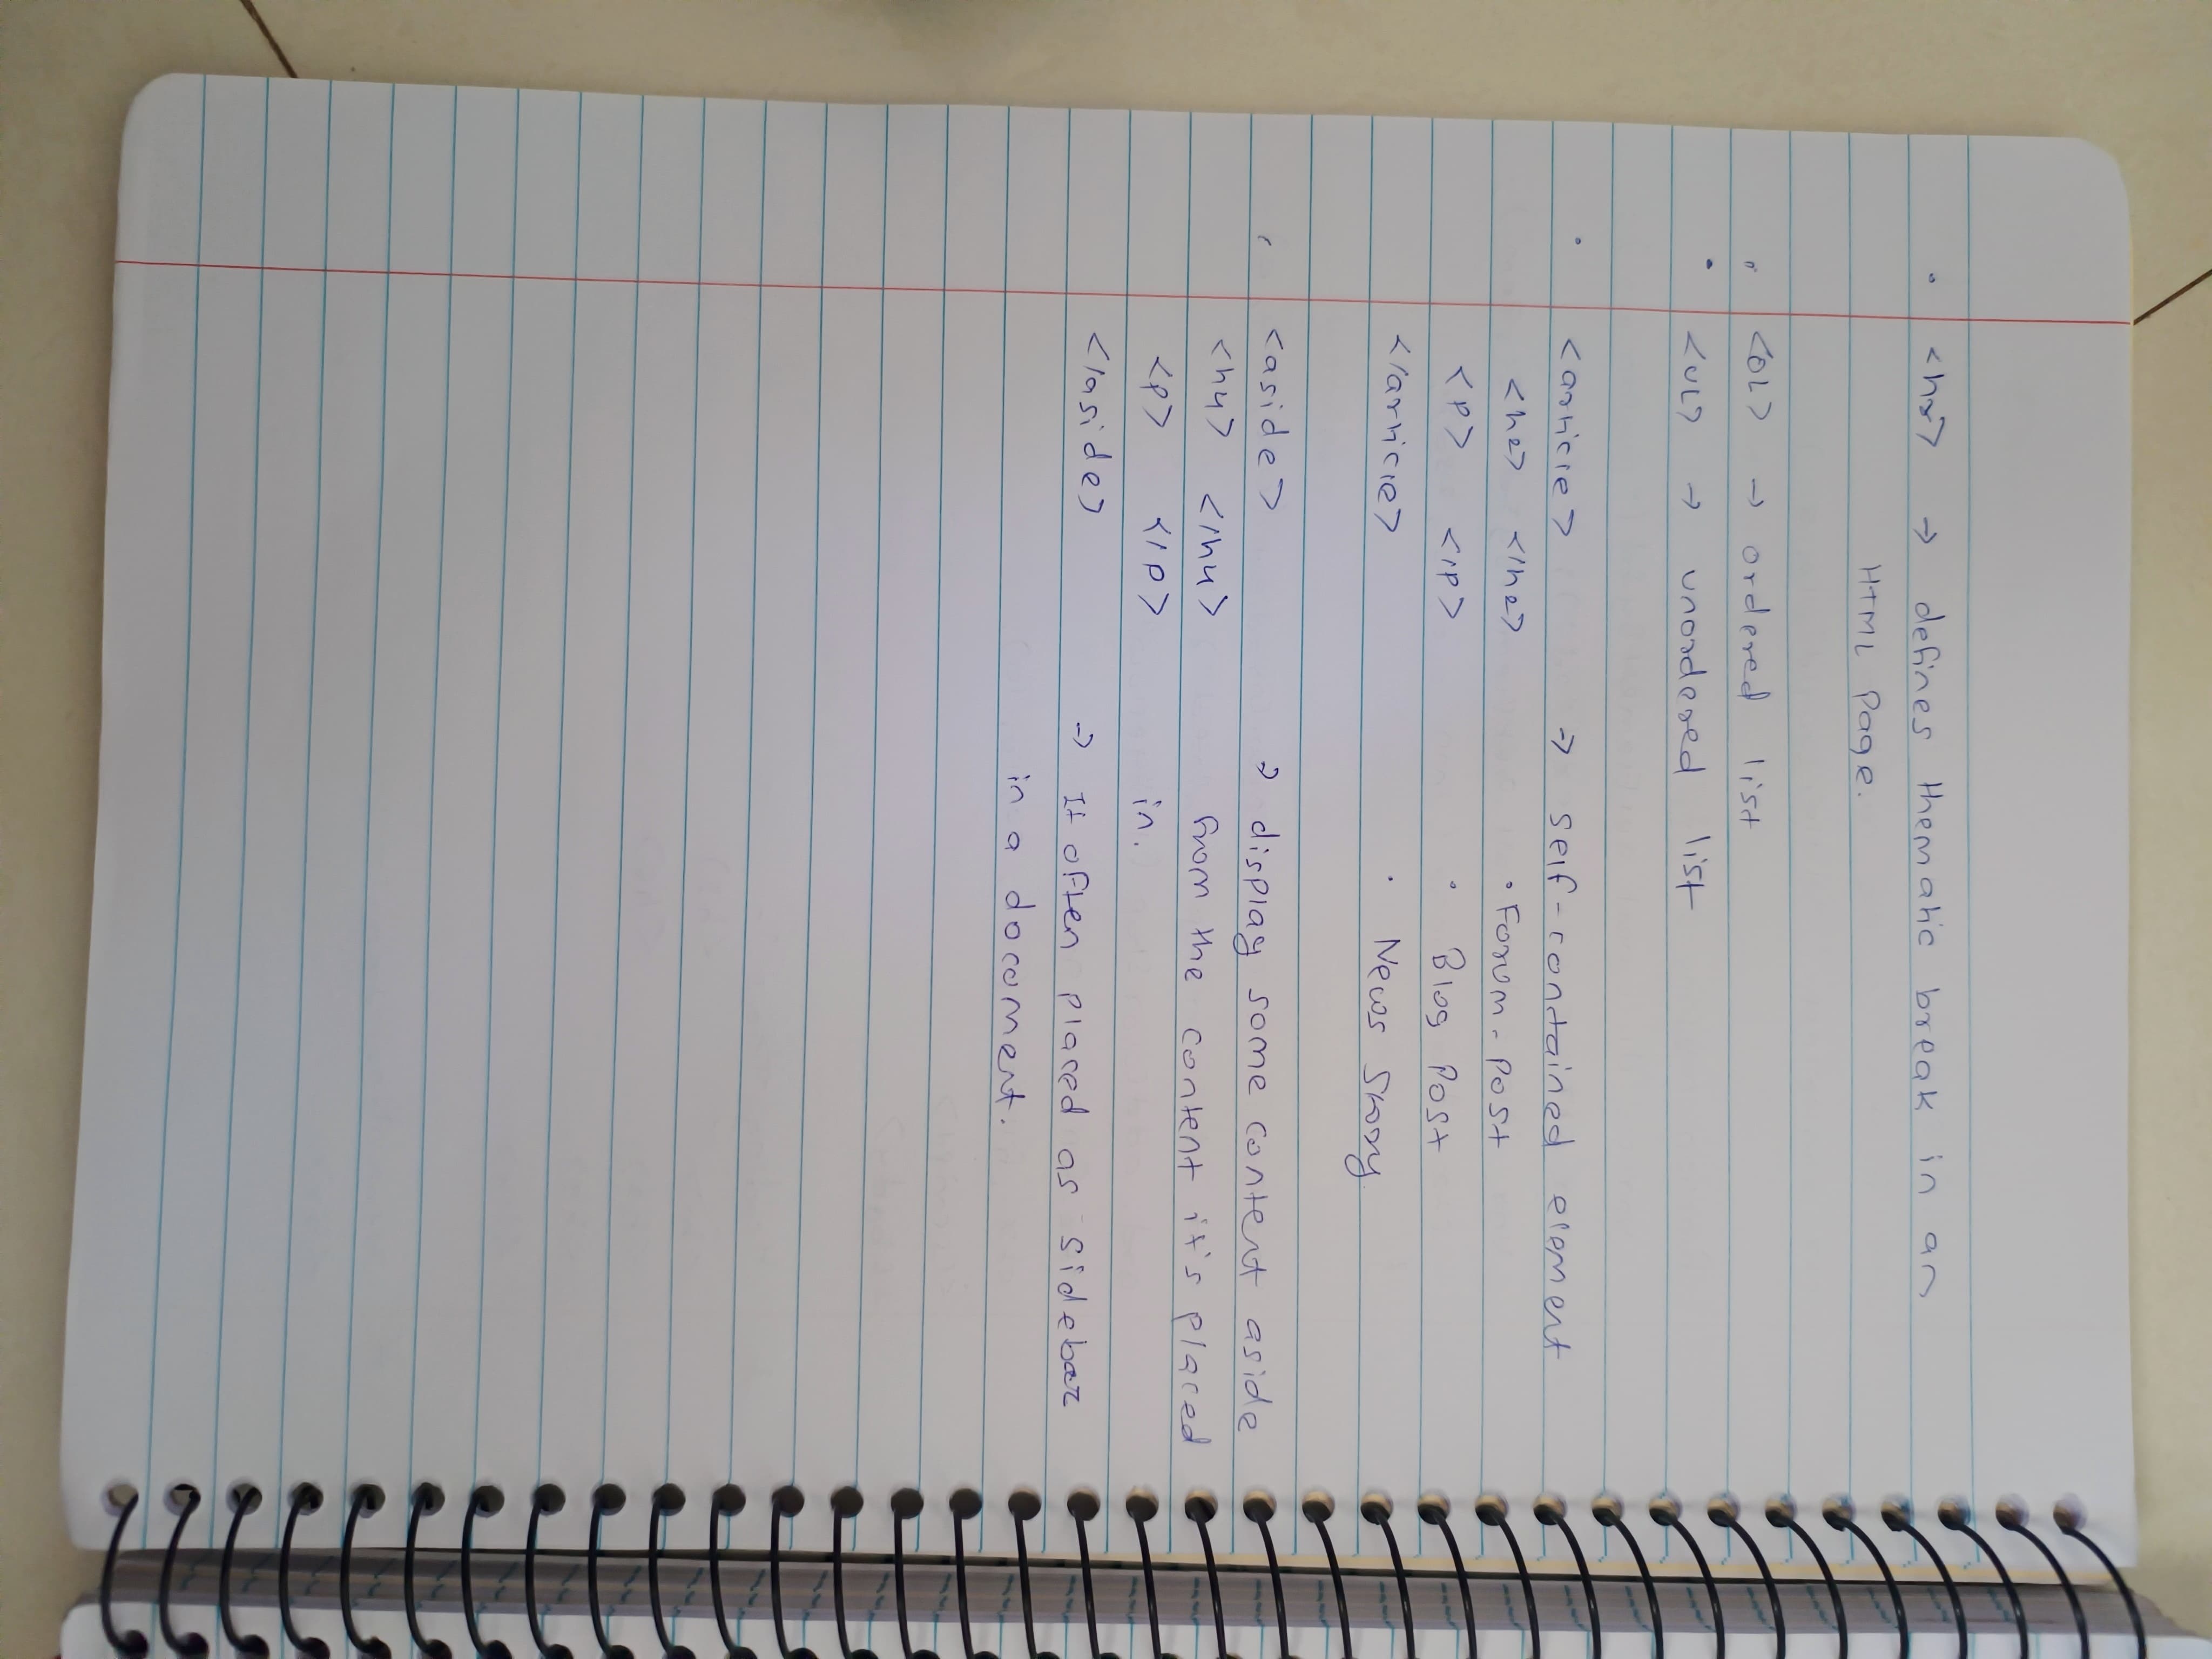 • <hr> → defines thematic break in an
HTML Page.
• <OL> → ordered list
• <UL> → unordered list
• <article> → self-contained element
<h2> </h2> • Forum-Post
<p> </p> • Blog Post
</article> • News Story
• <aside> → display some content aside
<h4> </h4> from the content it's placed
<p> </p> in.
</aside> → It often placed as sidebar
in a document.